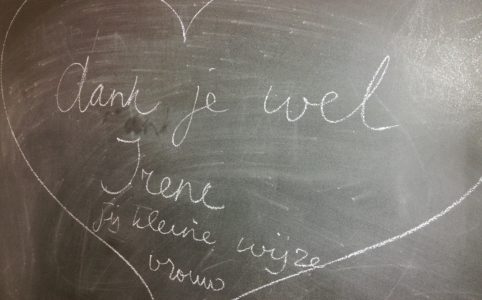 dank je wel
Irene
jij kleine wijze
vrouw